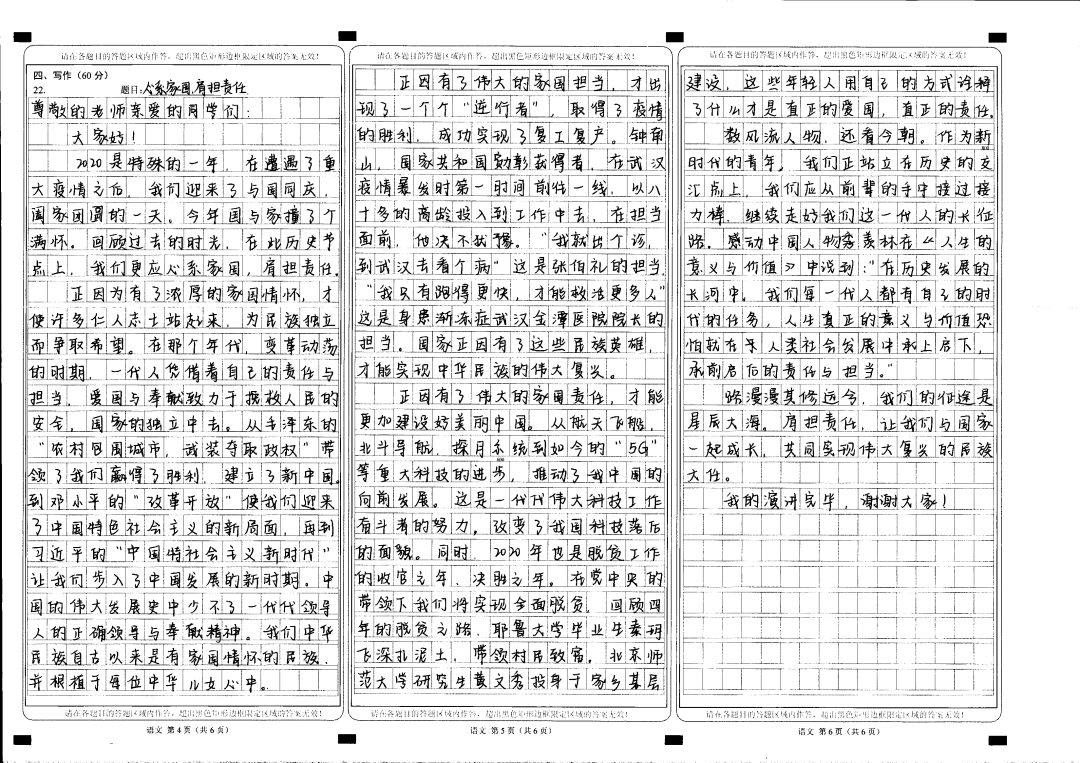 请在各题目的答题区域内作答，超出黑色矩形边框限定区域的答案无效！
四、写作（60分）
22.
题目:心系家国,肩担责任
尊敬的老师亲爱的同学们：
大家好！
2020是特殊的一年，在遭遇了重
大疫情之后，我们迎来了与国同庆，
阖家团圆的一天。今年国与家撞了个
满怀。回顾过去的时光，在此历史节
点上，我们更应心系家国，肩担责任。
正因为有了浓厚的家国情怀，才
使许多仁人志士站起来，为民族独立
而争取希望。在那个年代，变革动荡
的时期，一代人凭借着自己的责任与
担当，爱国与奉献致力于拯救人民的
安命，国家的独立中去。从毛泽东的
“农村包围城市，武装夺取政权”带
领了我们赢得了胜利，建立了新中国。
到邓小平的“改革开放”使我们迎来
了中国特色社会主义的新局面，再到
习近平的“中国特社会主义新时代”
让我们步入了中国发展的新时期。中
国的伟大发展史中少不了一代代领导
人的正确领导与奉献精神。我们中华
民族自古以来是有家国情怀的民族，
并根植于每位中华儿女心中。
请在各题目的答题区域内作答，超出黑色矩形边框限定区域的答案无效！
语文 第4页（共6页）
请在各题目的答题区域内作答，超出黑色矩形边框限定区域的答案无效！
正因有了伟大的家国担当，才出
现了一个个“逆行者”，取得了疫情
的胜利，成功实现了复工复产。钟南
山，国家共和国勋彰获得者，在武汉
疫情暴发时第一时间前往一线，以八
十多的高龄投入到工作中去，在担当
面前，他决不犹豫。“我就出个诊，
到武汉去看个病”这是张伯礼的担当。
“我只有跑得更快，才能救治更多人”
这是身患渐冻症武汉金潭医院院长的
担当。国家正因有了这些民族英雄，
才能实现中华民族的伟大复兴。
正因有了伟大的家国责任，才能
更加建设好美丽中国。从航天飞船，
北斗导航，探月系统到如今的“5G”
等重大科技的进步，推动了我中国的
向前发展。这是一代代伟大科技工作
奋斗者的努力。改变了我国科技落后
的面貌。同时，2020年也是脱贫工作
的收官之年、决胜之年。在党中央的
带领下我们将实现全面脱贫。回顾四
年的脱贫之路，耶鲁大学毕业生秦玥
飞深扎泥土，带领村民致富。北京师
范大学研究生黄文秀投身于家乡某层
请在各题目的答题区域内作答，超出黑色矩形边框限定区域的答案无效！
语文 第5页（共6页）
请在各题目的答题区域内作答，超出黑色矩形边框限定区域的答案无效！
建设，这些年轻人用自己的方式诠释
了什么才是真正的爱国，真正的责任。
数风流人物，还看今朝。作为新
时代的青年，我们正站立在历史的交
汇点上，我们应从前辈的手中接过接
力棒，继续走好我们这一代人的长征
路。感动中国人物季羡林在《人生的
意义与价值》中说到：“在历史发展的
长河中，我们每一代人都有自己的时
代的任务，人生真正的意义与价值恐
怕就在乎人类社会发展中承上启下，
承前启后的责任与担当。”
路漫漫其修远兮，我们的征途是
星辰大海。肩担责任，让我们与国家
一起成长，共同实现伟大复兴的民族
大任。
我的演讲完毕，谢谢大家！
请在各题目的答题区域内作答，超出黑色矩形边框限定区域的答案无效！
语文 第6页（共6页）